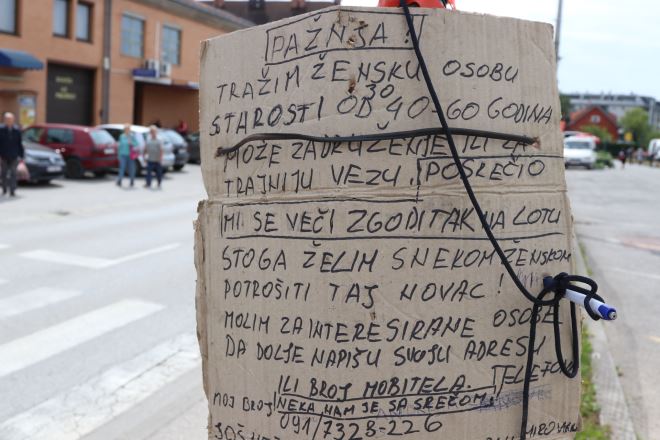 PAŽNJA!
TRAŽIM ŽENSKU OSOBU
30
STAROSTI OD 40-60 GODINA
MOŽE ZADRUŽENJE ILI ZA
TRAJNIJU VEZU! POSLEČIO
MI SE VEČI ZGODITAK NA LOTU
STOGA ŽELIM SNEKOM ŽENSKOM
POTROŠITI TAJ NOVAC!
MOLIM ZAINTERESIRANE OSOBE
DA DOLJE NAPIŠU SVOJU ADRESU
ILI BROJ MOBITELA. TELEFON
MOJ BROJ NEKA NAM JE SA SREČOM!
091/7328-226